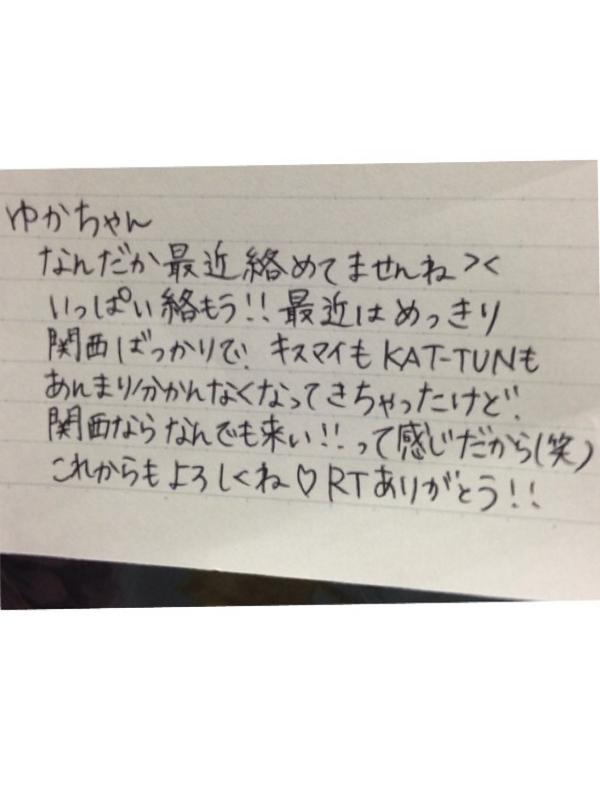 ゆかちゃん
なんだか最近絡めてませんね><
いっぱい絡もう!!最近はめっきり
関西ばっかりで、キスマイもKAT-TUNも
あんまり分かんなくなってきちゃったけど、
関西ならなんでも来い!!って感じだから(笑)
これからもよろしくね♡RTありがとう!!